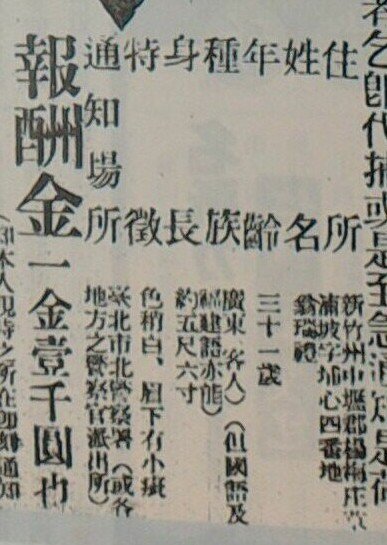 者乞即代捕或是至急
住所 新竹州中壢郡楊梅庄
湳坡字埔心四番地
姓名 翁瑞禮
年齡 三十一歲
種族 廣東(客人)(但國語及
福建語亦能)
身長 約五尺六寸
特徵 色稍白、眉下有小
通知場所 臺北市北警察署(或各
地方之警察官派出所)
報酬金一金壹千圓也
本人現時之所在即刻通知